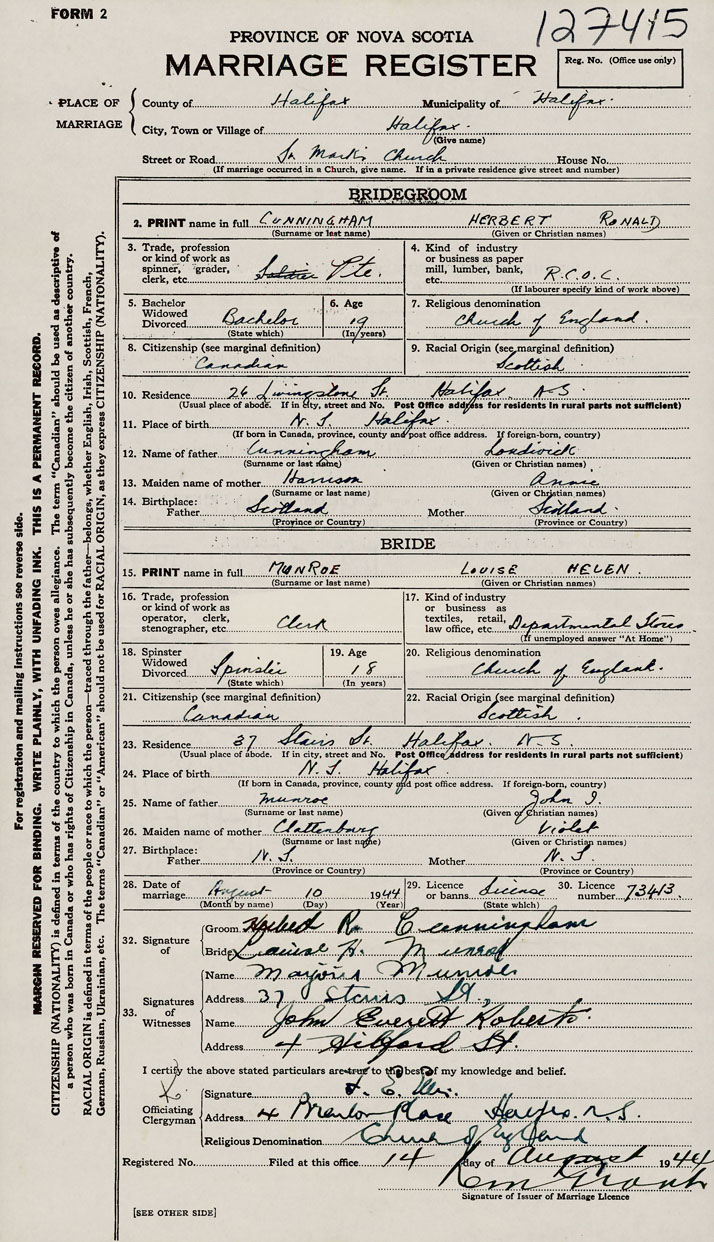 FORM 2
127415
PROVINCE OF NOVA SCOTIA
MARRIAGE REGISTER
Reg. No. (Office use only)
PLACE OF MARRIAGE
County of Halifax Municipality of Halifax.
City, Town or Village of Halifax.
(Give name)
Street or Road St. Mark's Church House No.
(If marriage occurred in a Church, give name. If in a private residence give street and number)
BRIDEGROOM
2. PRINT name in full CUNNINGHAM HERBERT RONALD
(Surname or last name) (Given or Christian names)
3. Trade, profession or kind of work as spinner, grader, clerk, etc. Soldier Pte.
4. Kind of industry or business as paper mill, lumber, bank, etc. R.C.O.C.
(If labourer specify kind of work above)
5. Bachelor Widowed Divorced Bachelor
(State which)
6. Age 19
(In years)
7. Religious denomination
Church of England.
8. Citizenship (see marginal definition)
Canadian
9. Racial Origin (see marginal definition)
Scottish
10. Residence 26 Livingstone St. Halifax N.S
(Usual place of abode. If in city, street and No. Post Office address for residents in rural parts not sufficient)
11. Place of birth N.S. Halifax.
(If born in Canada, province, county and post office address. If foreign-born, country)
12. Name of father Cunningham Lodwick
(Surname or last name) (Given or Christian names)
13. Maiden name of mother Harrison Annie
(Surname or last name) (Given or Christian names)
14. Birthplace: Father Scotland Mother Scotland.
(Province or Country) (Province or Country)
BRIDE
15. PRINT name in full MUNROE LOUISE HELEN.
(Surname or last name) (Given or Christian names)
16. Trade, profession or kind of work as operator, clerk, stenographer, etc. Clerk
17. Kind of industry or business as textiles, retail, law office, etc. Departmental Stores
(If unemployed answer "At Home")
18. Spinster Widowed Divorced Spinster
(State which)
19. Age 18
(In years)
20. Religious denomination
Church of England.
21. Citizenship (see marginal definition)
Canadian
22. Racial Origin (see marginal definition)
Scottish.
23. Residence 37 Stairs St. Halifax. N.S.
(Usual place of abode. If in city, street and No. Post Office address for residents in rural parts not sufficient)
24. Place of birth N.S. Halifax.
(If born in Canada, province, county and post office address. If foreign-born, country)
25. Name of father Munroe John J.
(Surname or last name) (Given or Christian names)
26. Maiden name of mother Clattenburg Violet
(Surname or last name) (Given or Christian names)
27. Birthplace: Father N.S. Mother N.S.
(Province or Country) (Province or Country)
28. Date of marriage August 10 1944
(Month by name) (Day) (Year)
29. Licence or banns License
(State which)
30. Licence number 73413.
32. Signature of
Groom Herbert R. Cunningham
Bride Louise H. Munroe
33. Signatures of Witnesses
Name Marjorie Munroe
Address 37 Stairs St.,
Name John Everett Roberts.
Address 4 St.
I certify the above stated particulars are true to the best of my knowledge and belief.
Officiating Clergyman
Signature E. Ellis.
Address 4 Place Halifax. N.S.
Religious Denomination Church of England
Registered No. Filed at this office 14 day of August 1944
Signature of Issuer of Marriage Licence
[SEE OTHER SIDE]
For registration and mailing instructions see reverse side.
MARGIN RESERVED FOR BINDING. WRITE PLAINLY, WITH UNFADING INK. THIS IS A PERMANENT RECORD.
CITIZENSHIP (NATIONALITY) is defined in terms of the country to which the person owes allegiance. The term "Canadian" should be used as descriptive of
a person who was born in Canada or who has rights of Citizenship in Canada, unless he or she has subsequently become the citizen of another country.
RACIAL ORIGIN is defined in terms of the people or race to which the person—traced through the father—belongs, whether English, Irish, Scottish, French,
German, Russian, Ukrainian, etc. The terms "Canadian" or "American" should not be used for RACIAL ORIGIN, as they express CITIZENSHIP (NATIONALITY).